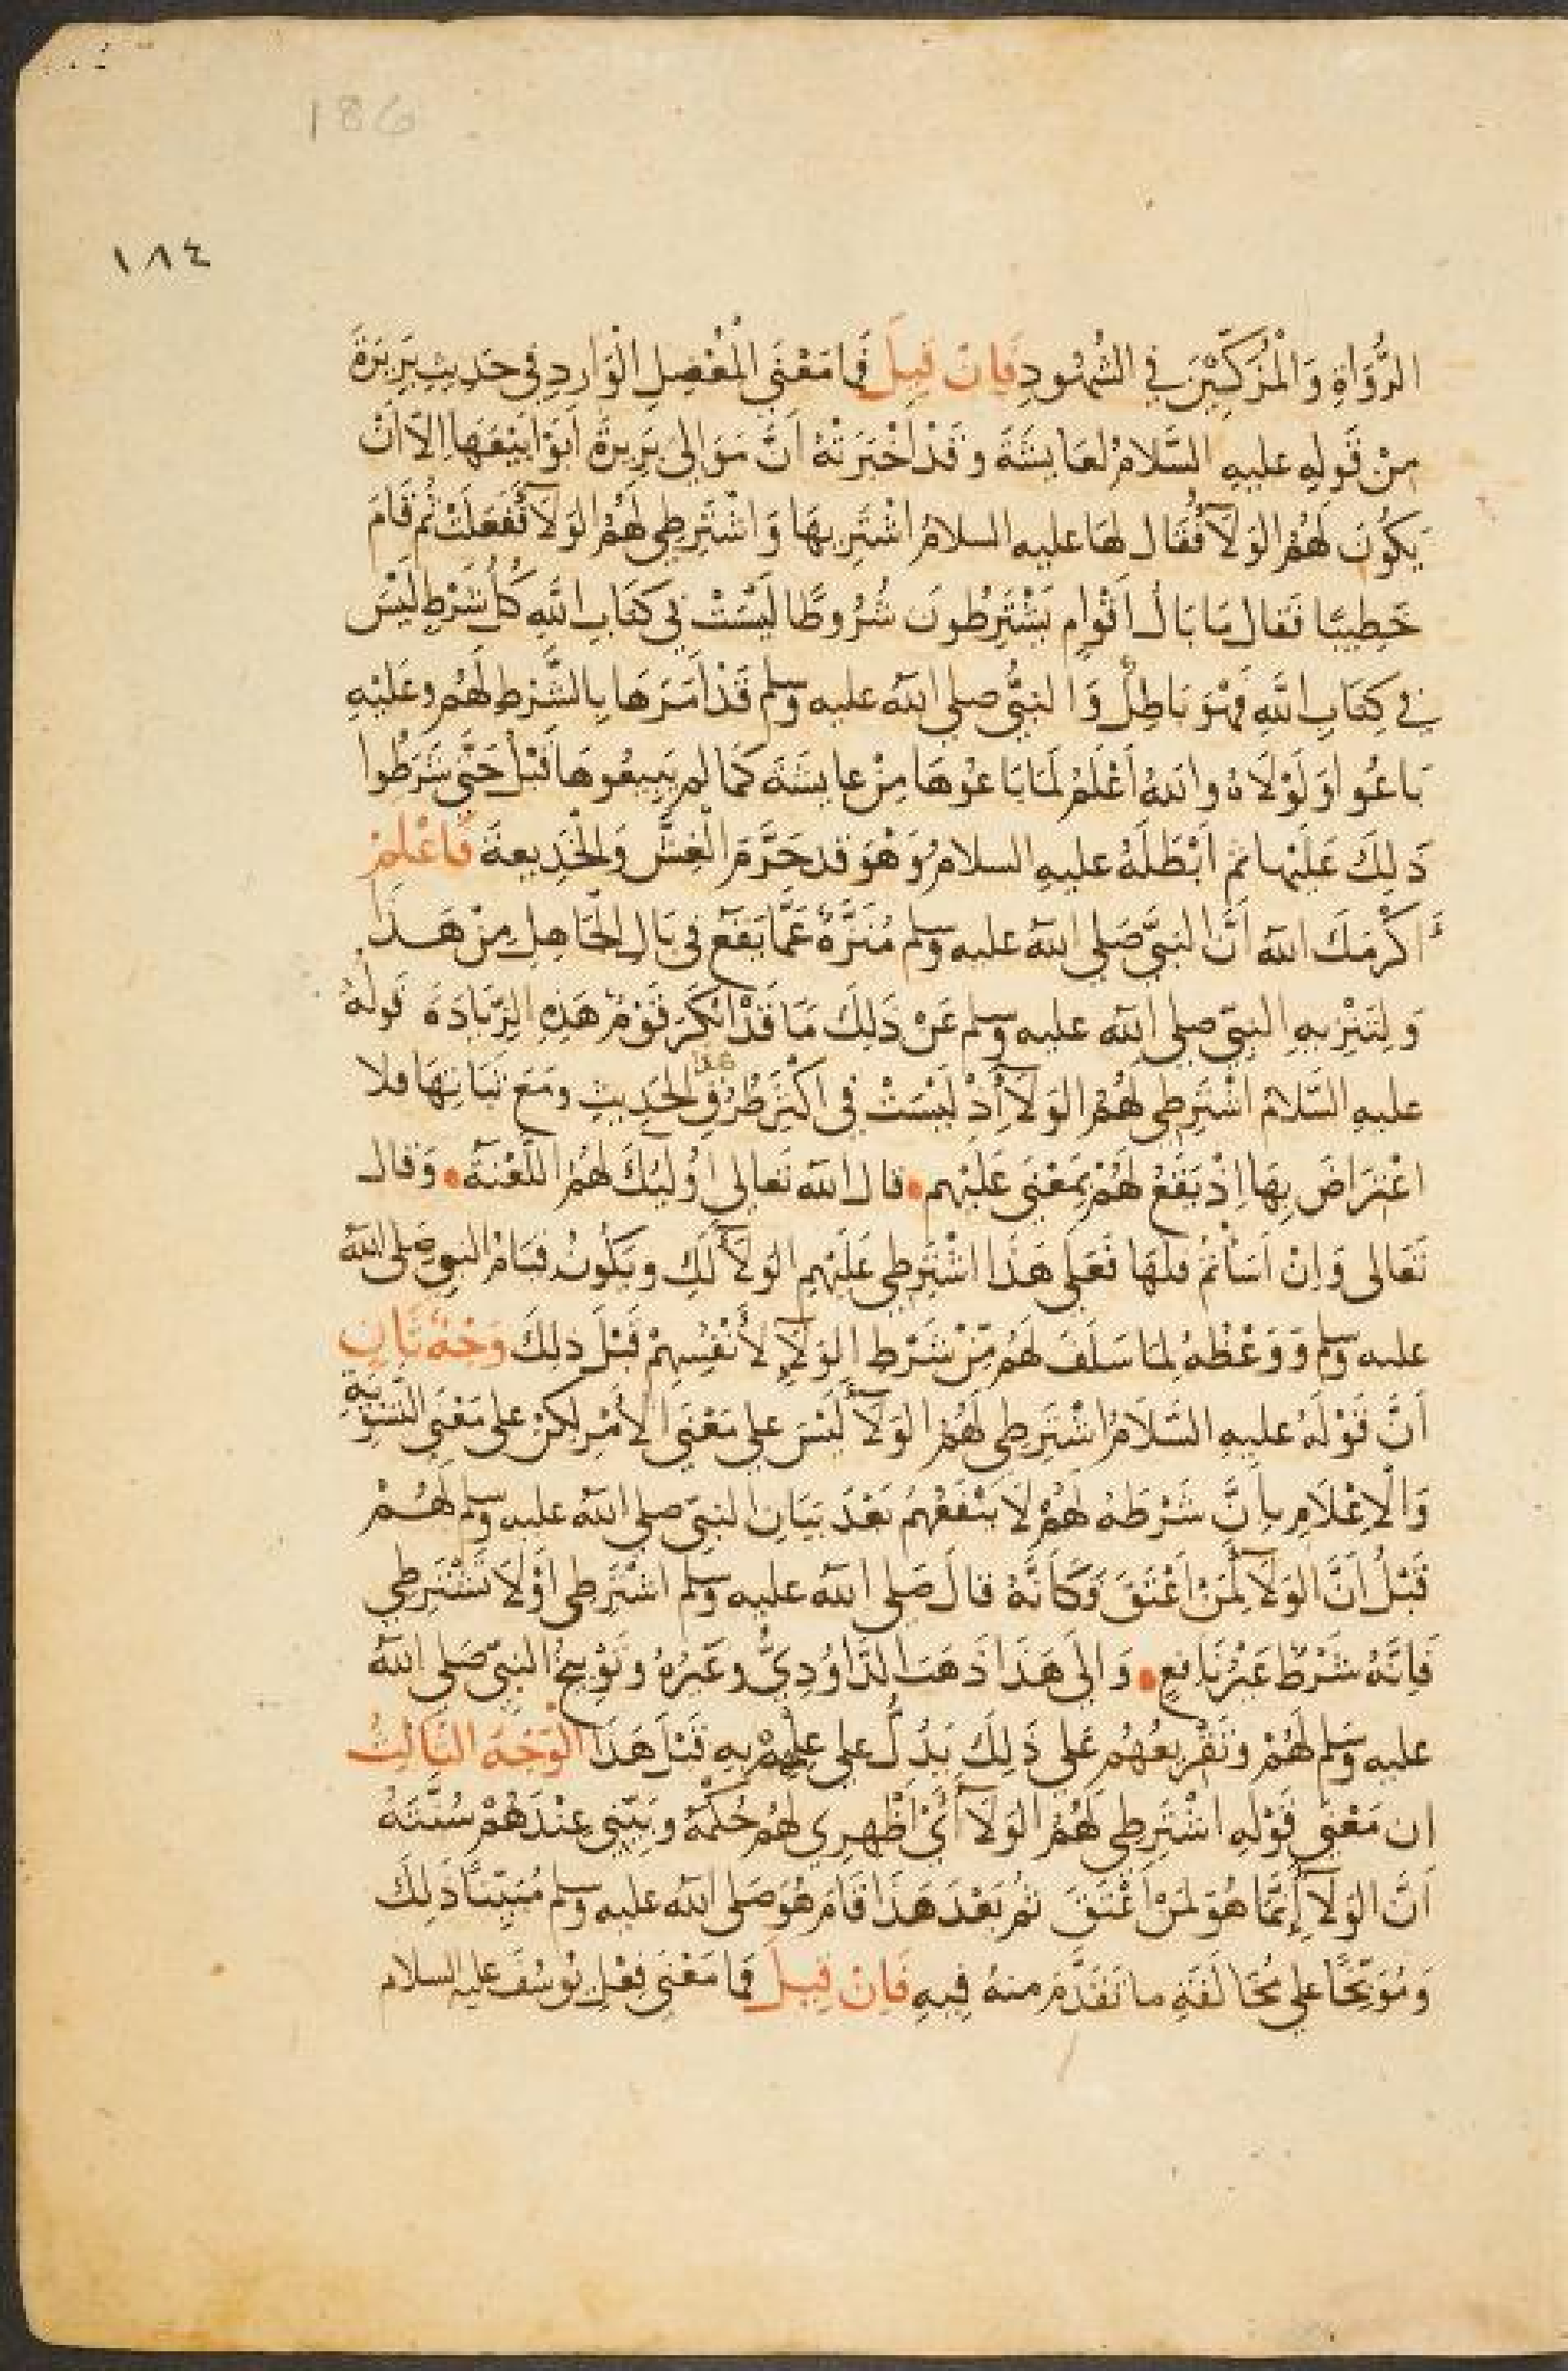 186
١٨٤
الرُّوَاةِ وَالْمُزَكِّيْنَ في الشُّهُودِ فَإن قيلَ فَما مَعْنَى الْمُعْضِلِ الْوَارِدِ في حَدِيثِ بَرِيرَةَ
مِنْ قَولِهِ عليهِ السَّلامُ لعَايشَةَ وقَدْ أَخْبَرَتْهُ أَنَّ مَوَالِىَ بَرِيرَةَ أَبَوْا بَيْعَهَا إلاّ أنْ
يَكُونَ لَهُمُ الوَلَآءُ فَقَال لهَا عليه السلامُ اشْتَرِيهَا وَاشْتَرِطِي لَهُمُ الوَلَآءَ فَفَعَلَتْ ثُم قَامَ
خَطِيبًا فَقال مَا بَالُ أَقْوامٍ يَشْتَرِطُونَ شُرُوطًا لَيْسَتْ في كتَابِ اللهِ كلُّ شَرْطٍ لَيْسَ
في كِتَابِ اللهِ فَهْوَ بَاطِلٌ وَالنبيُّ صلى اللهُ عليه وسلم قَدْ أمَرَهَا بالشَّرْطِ لَهُم وعَلَيْهِ
بَاعُوا وَلَوْلَاهُ واللهُ أعْلَمُ لَمَا بَاعُوهَا مِنْ عايشَةَ كَمَا لم يَبيعُوهَا قَبْلُ حَتَّى شَرَطُوا
ذَلِكَ عَلَيْها ثم أبْطَلَهُ عليهِ السلامُ وَهْوَ قد حَرَّمَ الْغِشَّ وَالْخَدِيعةَ فَاعْلَمْ
أكْرَمَكَ الله أَنَّ النبيَّ صَلى اللهُ عليه وسلم مُنَزَّهٌ عَمَّا يَقَعُ في بَالِ الْجَاهِلِ مِنْ هَـذَا
وَلِتَنْزِيهِ النبيّ صلى الله عليه وسلم عَنْ ذَلِكَ مَا قَدْ أنْكَرَ قَوْمٌ هَذِهِ الزّيَادَةَ قَولَهُ
عليهِ السَّلامُ اشْتَرِطِي لَهُمُ الوَلَآءَ إذْ لَيْسَتْ في أكْثَرِ طُرُقِ الحَدِيثِ ومَعَ ثَبَاتِهَا فلا
اعْتِرَاضَ بِهَا إذْ يَقَعُ لَهُمْ بمَعْنَى عَلَيْهِم • قال الله تَعالى أُولَئِكَ لَهُمُ اللَّعْنَةُ • وَقال
تَعَالى وَإنْ أَسَأْتُمْ فلَهَا فَعَلَى هَذَا اشْتَرِطِي عَلَيْهِم الوَلَآءَ لَكِ ويَكُونُ قيَامُ النبي صَلى الله
عليه وسلم وَوَعْظُهُ لِمَا سَلَفَ لهُم مِّنْ شَرْطِ الوَلَآءِ لأَنْفُسِهِمْ قَبْلَ ذلِكَ وَجْهٌ ثَانٍ
أَنَّ قَوْلَهُ عليهِ السَّلَامُ اشْتَرِطِي لَهُمُ الوَلَآءَ لَيْسَ على مَعْنَى الأَمْرِ لكِنْ على مَعْنَى التَّسْوِيَةِ
وَالْإعْلَامِ بأنَّ شَرْطَهُ لَهُمْ لَا يَنْفَعُهُم بَعْدَ بَيَانِ النبيّ صلى الله عليه وسلم لَهُـمْ
قَبْلُ أَنَّ الوَلَآءَ لِمَنْ أعْتَقَ وَكَأَنَّهُ قالَ صَلى الله عليه وسلم اشْتَرِطِي أوْ لَا تَشْتَرِطِي
فَإنَّهُ شَرْطٌ غَيْرُ نَافِعٍ • وَإلى هَذَا ذَهَبَ الدَّاوُدِيُّ وغَيْرُهُ وتَوْبيخُ النبيّ صَلى اللهُ
عليه وسلم لَهُمْ وتَقْرِيعُهُم عَلى ذَلِكَ يَدُلُّ على علْمِهِمْ بِهِ قَبْلَ هَذَا الْوَجْهُ الثَّالِثُ
ان مَعْنَى قَوْلِهِ اشْتَرِطي لَهُمُ الوَلَآءَ أَيْ أَظْهِرِي لَهُم حُكْمَهُ وبَيِّنِي عِنْدَهُمْ سُنَّتَهُ
أَنَّ الوَلَآءَ إنَّمَا هُوَ لِمَنْ أَعْتَقَ ثُم بَعْدَ هَذَا قَامَ هُوَ صَلى الله عليه وسلم مُبَيِّنًا ذَلِكَ
وَمُوَبِّخًا على مُخَالَفَةِ ما تَقَدَّمَ منهُ فِيهِ فَإنْ قِيلَ فَما مَعْنَى فِعْلِ يُوسُفَ عليه السلام